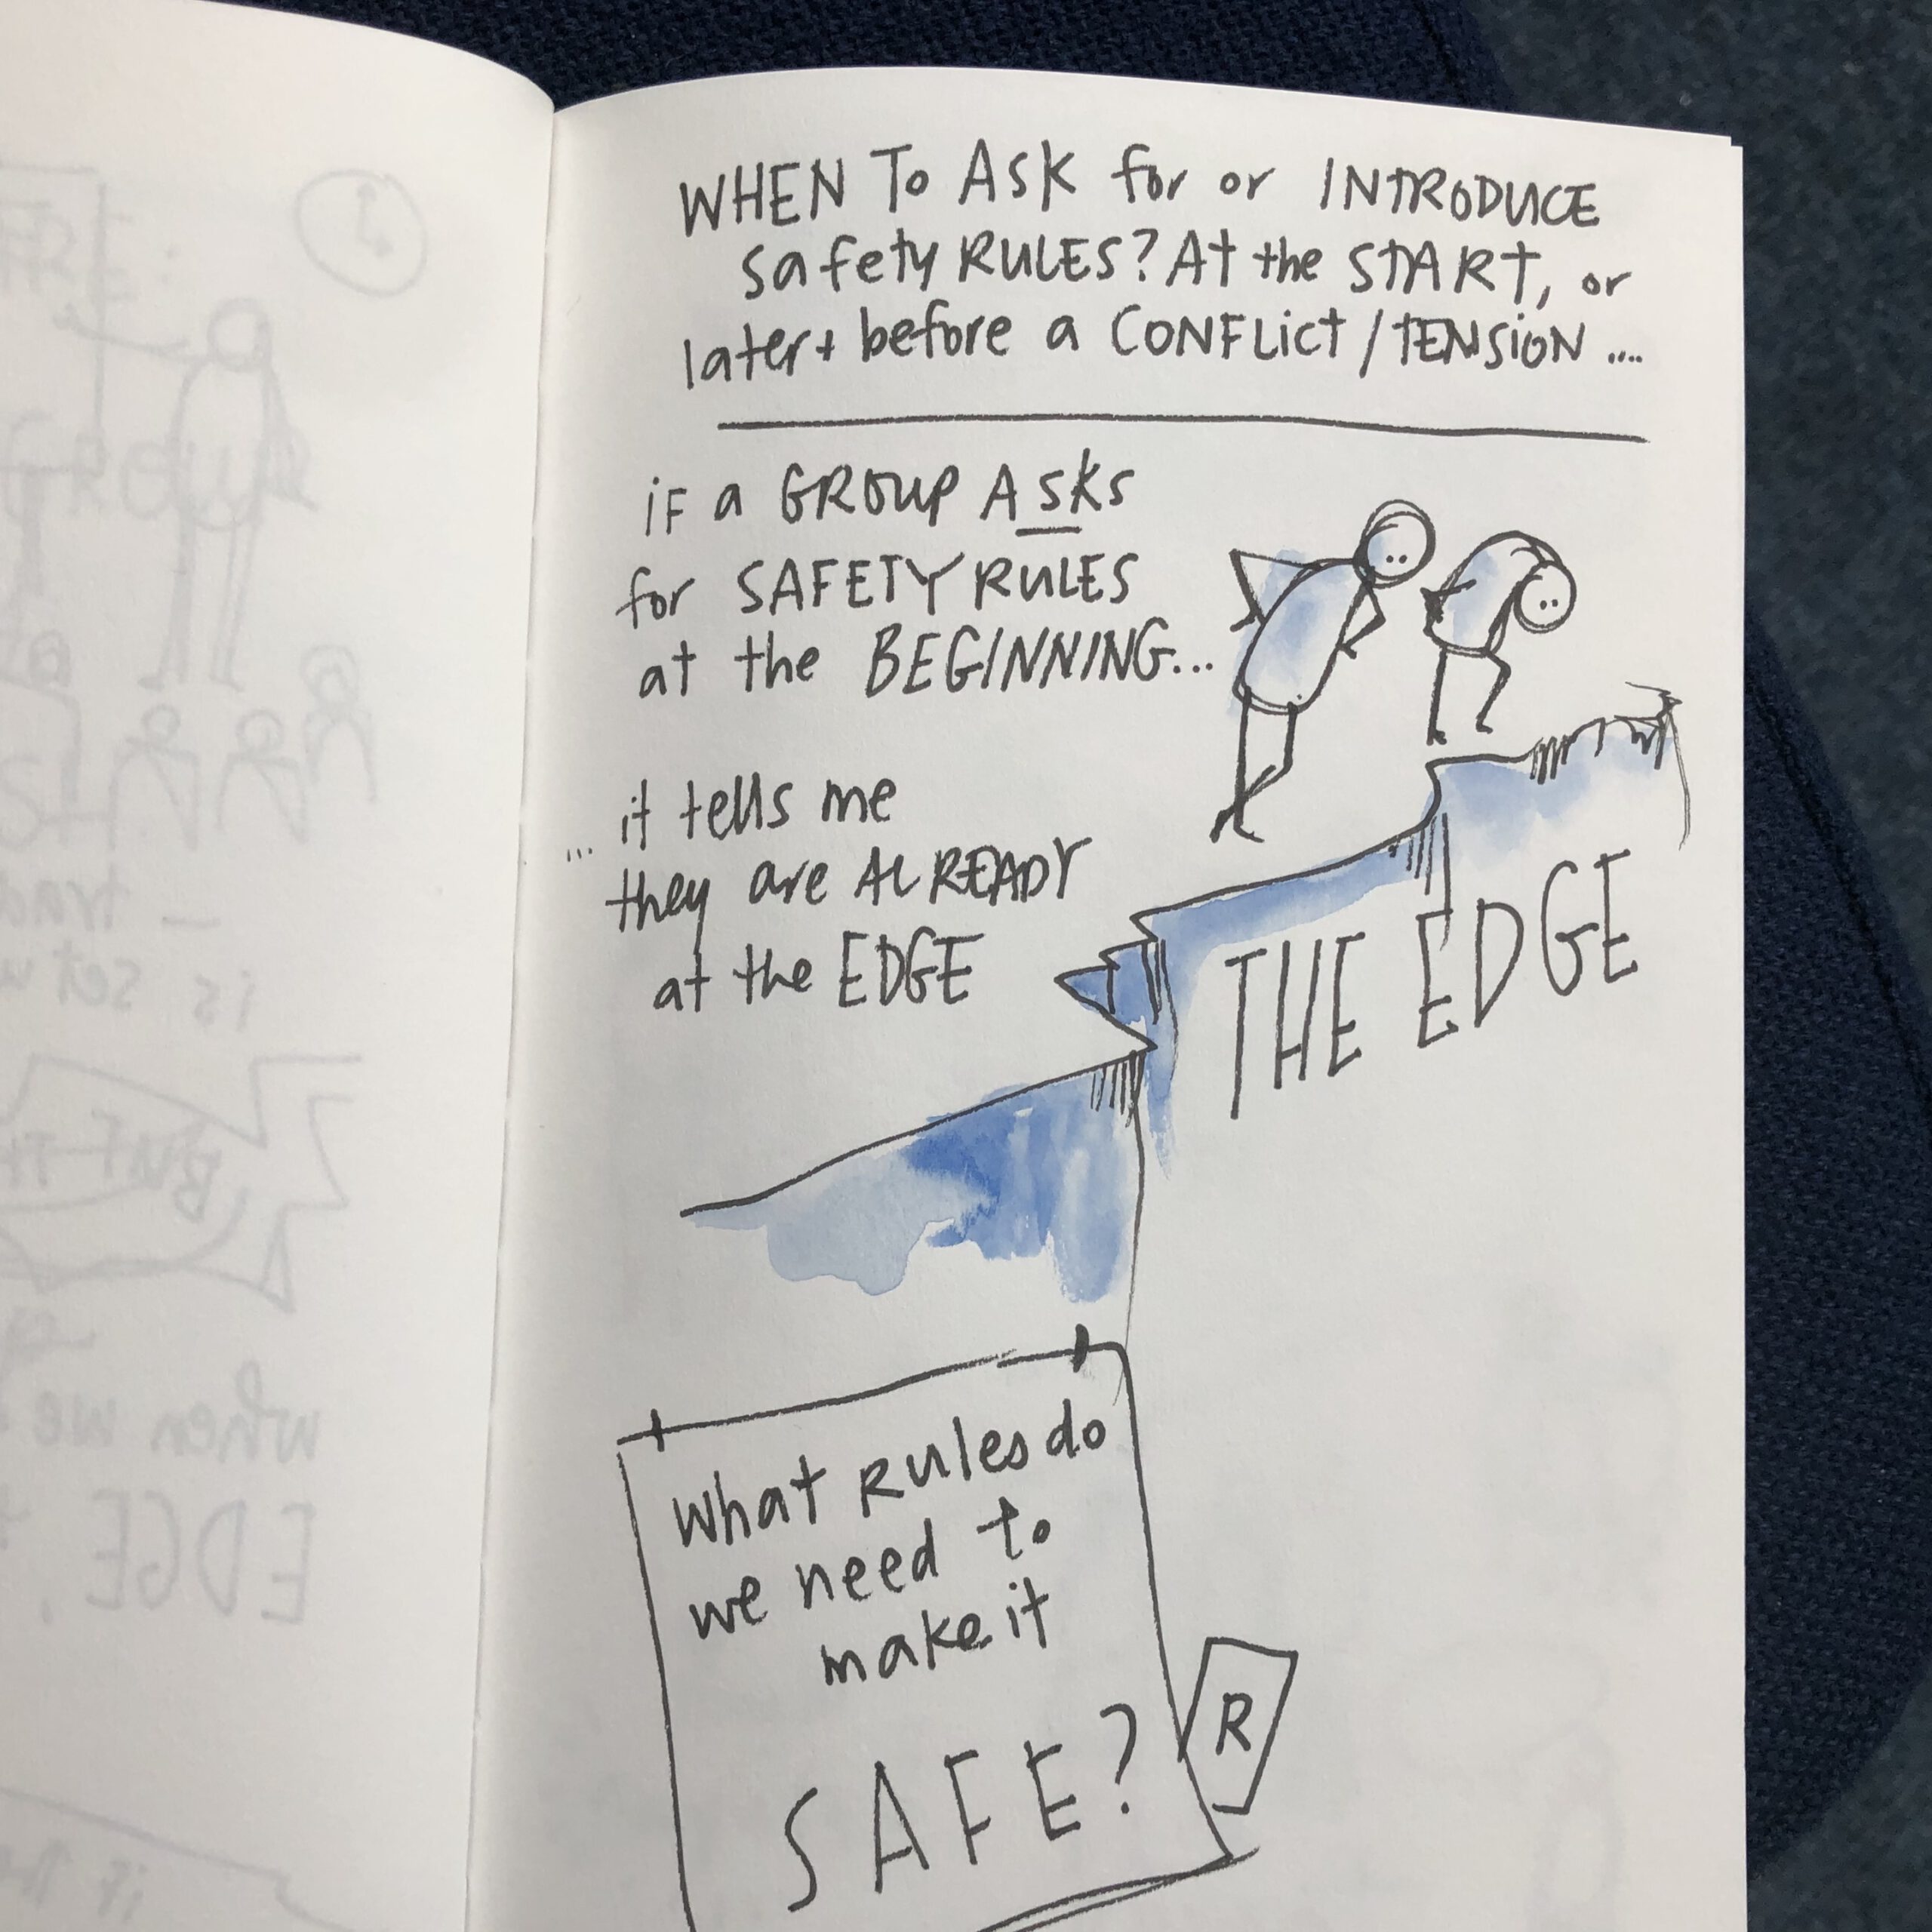 WHEN To ASK for or INTRODUCE
safety RULES? At the START, or
later + before a CONFLict / TENSION ....
iF a GROUP Asks
for SAFETY RULES
at the BEGINNING...
... it tells me
they are ALREADY
at the EDGE
THE EDGE
What Rules do
we need to
make it
SAFE?
R